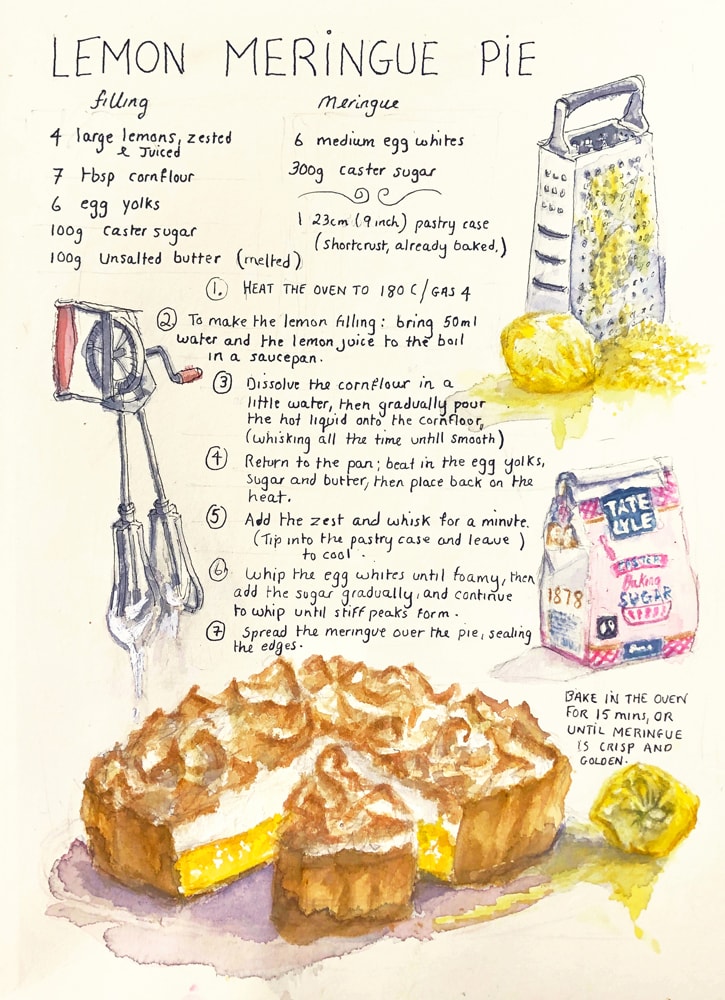 LEMON MERINGUE PIE
filling
4 large lemons, zested
& Juiced
7 tbsp cornflour
6 egg yolks
100g caster sugar
100g unsalted butter (melted)
Meringue
6 medium egg whites
300g caster sugar
1 23cm (9 inch) pastry case
(shortcrust, already baked.)
1. HEAT THE OVEN TO 180 C/GAS 4
2. To make the lemon filling: bring 50ml
water and the lemon juice to the boil
in a saucepan.
3 Dissolve the cornflour in a
little water, then gradually pour
the hot liquid onto the cornfloor,
(whisking all the time untill smooth)
4 Return to the pan; beat in the egg yolks,
sugar and butter, then place back on the
heat.
5 Add the zest and whisk for a minute.
(Tip into the pastry case and leave)
to cool.
6 Whip the egg whites until foamy, then
add the sugar gradually, and continue
to whip until stiff peaks form.
7 Spread the meringue over the pie, sealing
the edges.
TATE
LYLE
Baking
SUGAR
1878
BAKE IN THE OVEN
FOR 15 mins, OR
UNTIL MERINGUE
IS CRISP AND
GOLDEN.